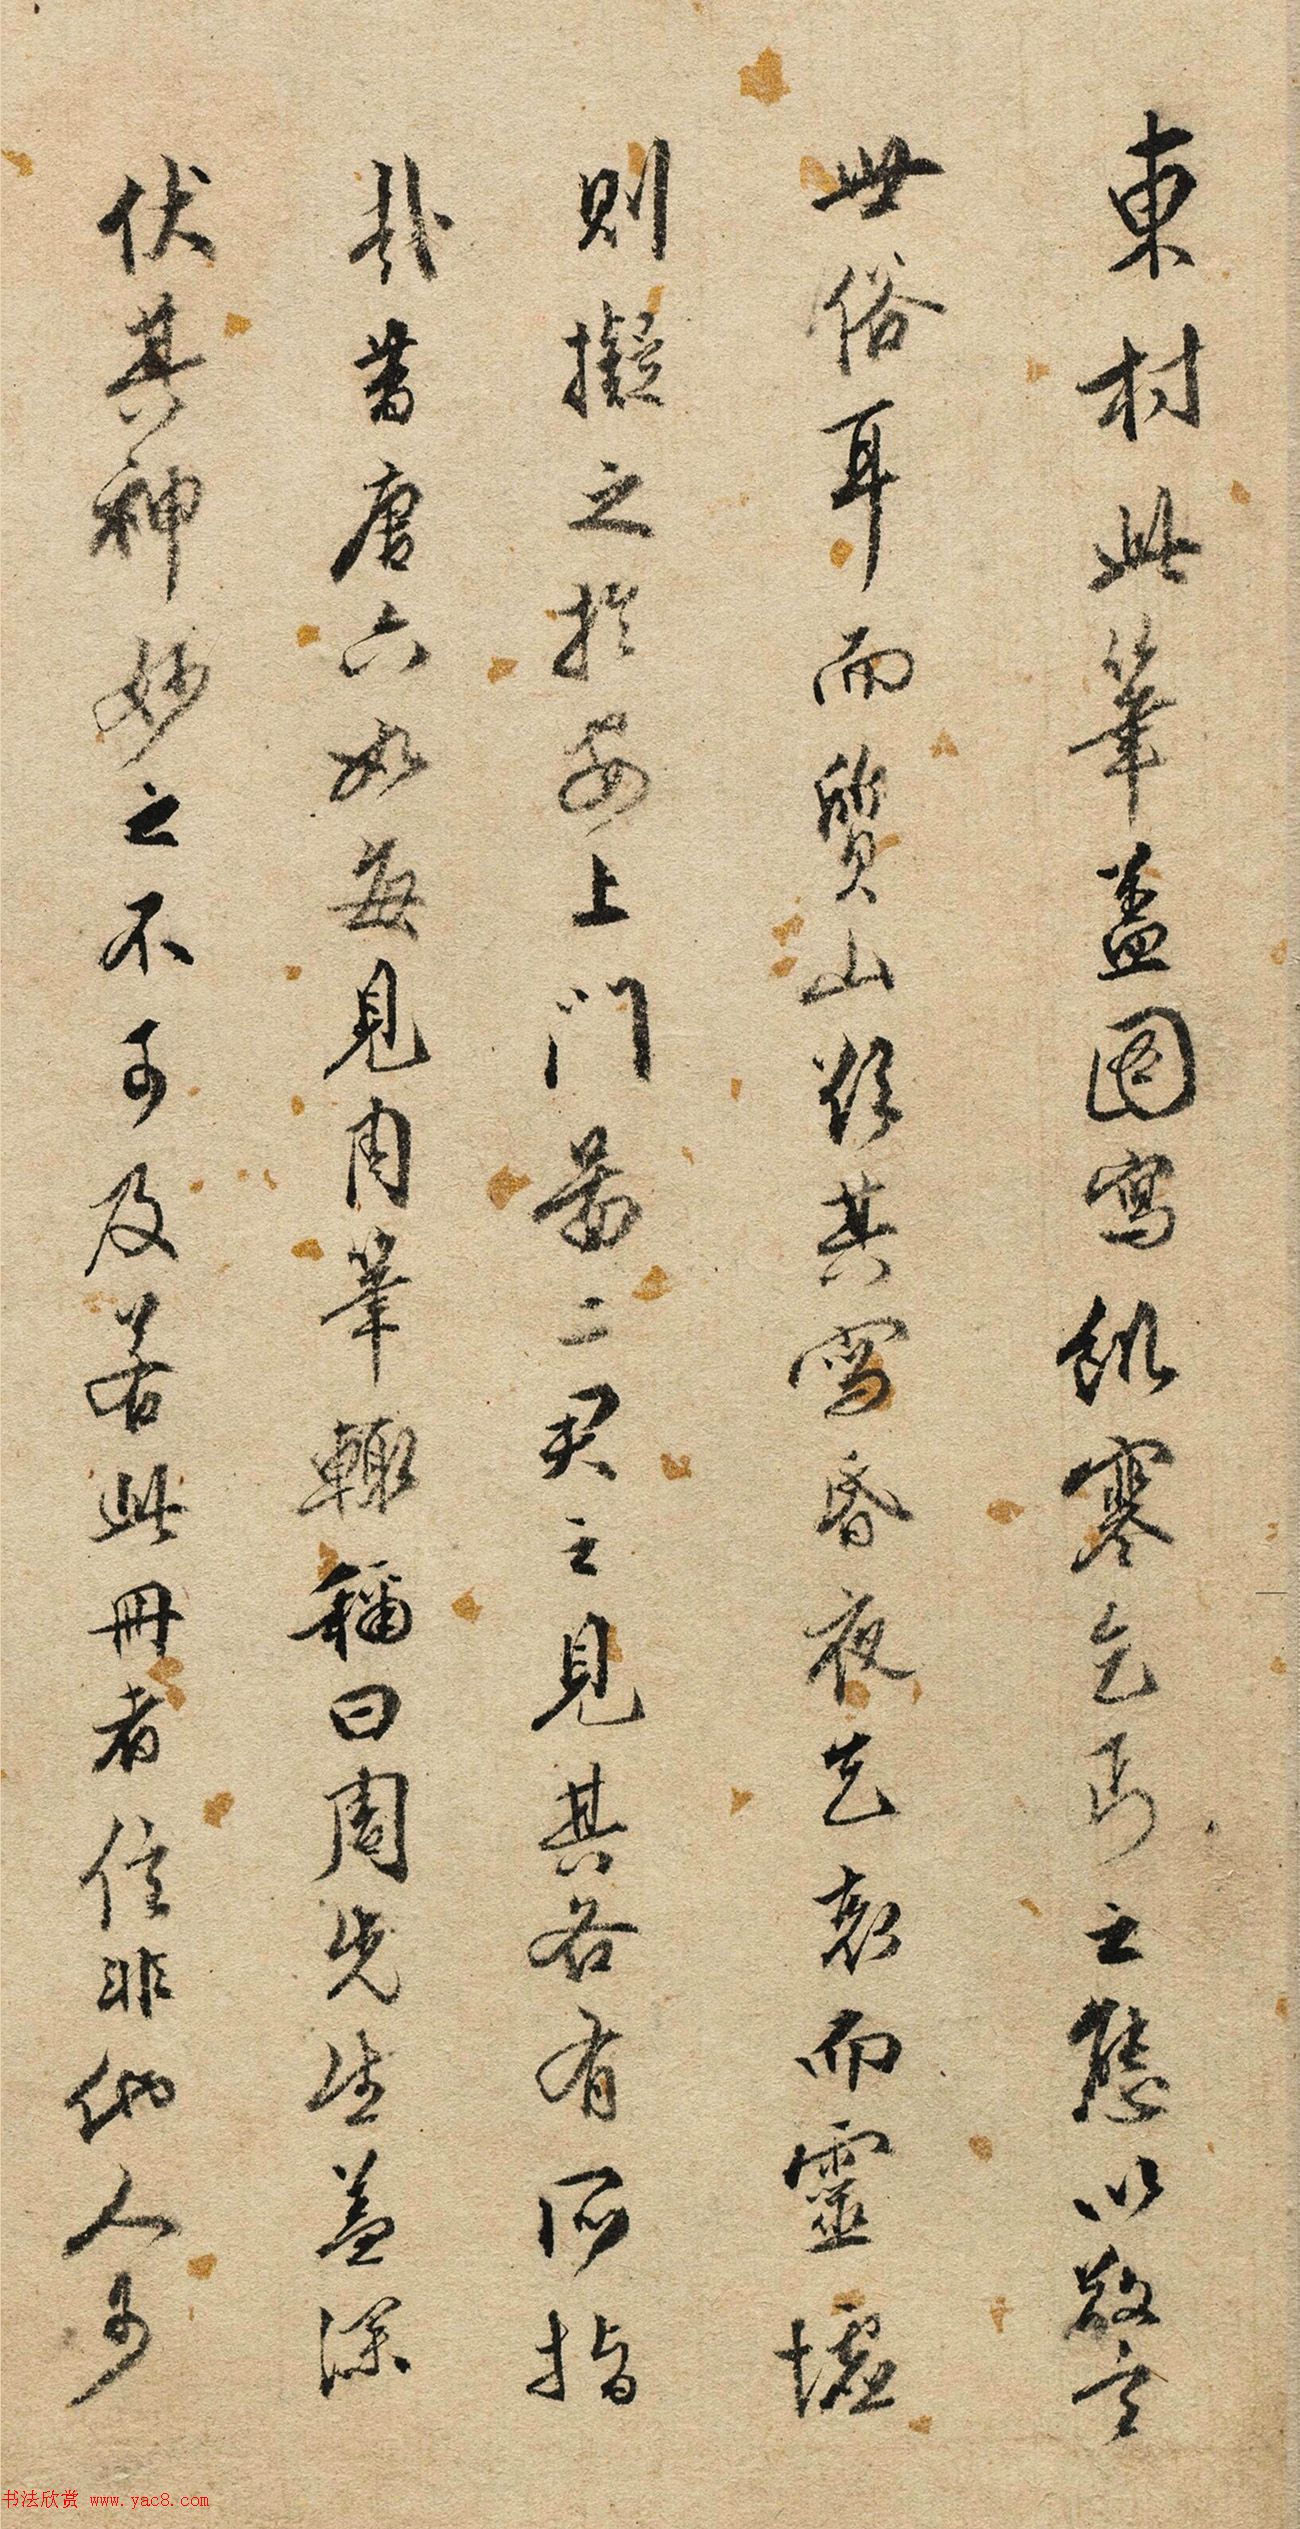 東村此筆蓋圖寫飢寒乞丐之態以警
世俗耳而質山其寫昏夜乞哀而靈墟
則擬之於安上門圖二君之見其各有所指
哉昔唐六如每見周筆輒稱曰周先生蓋深
伏其神妙之不可及若此冊者信非他人可
书法欣赏 www.yac8.com